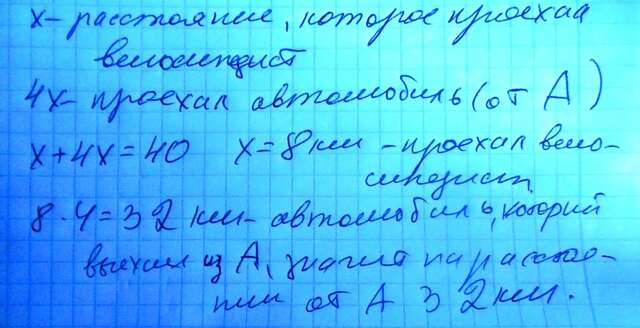 x - расстояние, которое проехал
велосипедист
4x - проехал автомобиль (от А)
x+4x=40 x=8 км - проехал вело-
сипедист
8·4=32 км - автомобиль, который
выехал из А, значит на расстоя-
нии от А 32 км.